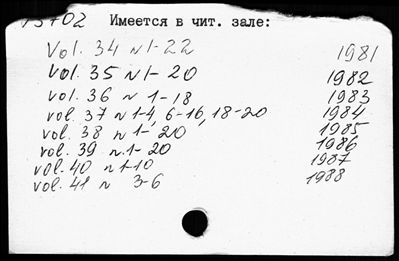 13702 Имеется в чит. зале:
Vol. 34 N 1-22 1981
Vol. 35 N 1-20 1982
Vol. 36 N 1-18 1983
vol. 37 N 1-4, 6-16, 18-20 1984
vol. 38 N 1-20 1985
vol. 39 N. 1-20 1986
vol. 40 N 1-10 1987
vol. 41 N 3-6 1988